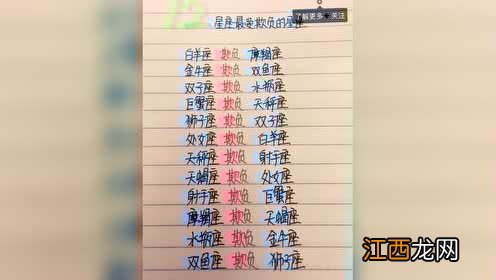 12星座最爱欺负的星座
了解更多 关注
白羊座 欺负 摩羯座
金牛座 欺负 双鱼座
双子座 欺负 水瓶座
巨蟹座 欺负 天秤座
狮子座 欺负 双子座
处女座 欺负 白羊座
天秤座 欺负 射手座
天蝎座 欺负 处女座
射手座 欺负 巨蟹座
摩羯座 欺负 天蝎座
水瓶座 欺负 金牛座
双鱼座 欺负 狮子座
江西龙网